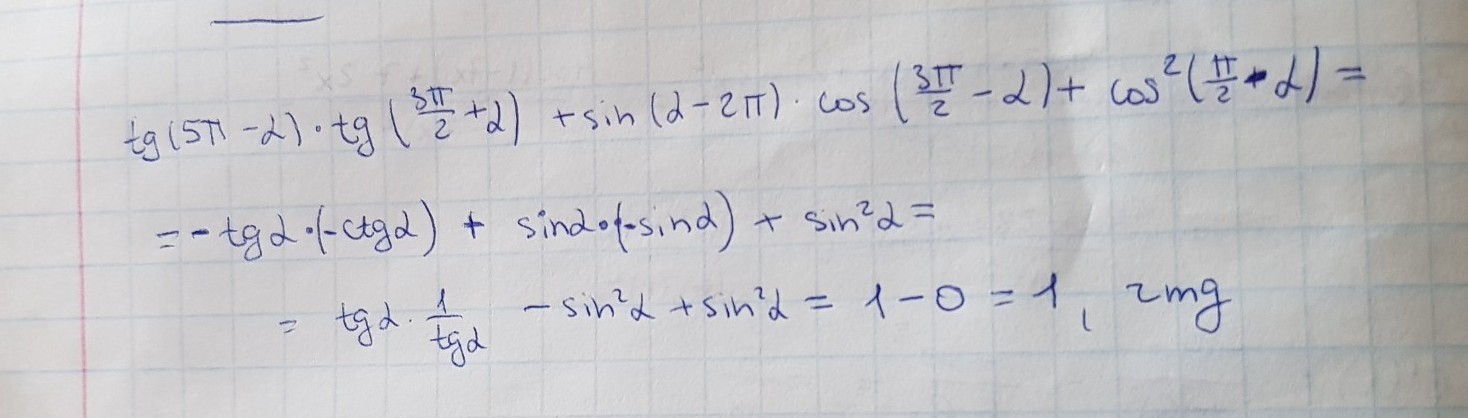 tg(5π-α)·tg(3π/2+α) + sin(α-2π)·cos(3π/2-α)+ cos²(π/2-α)=
=-tgα·(-ctgα) + sinα·(-sinα) + sin²α=
= tgα·1/tgα -sin²α+sin²α= 1-0=1, zmg